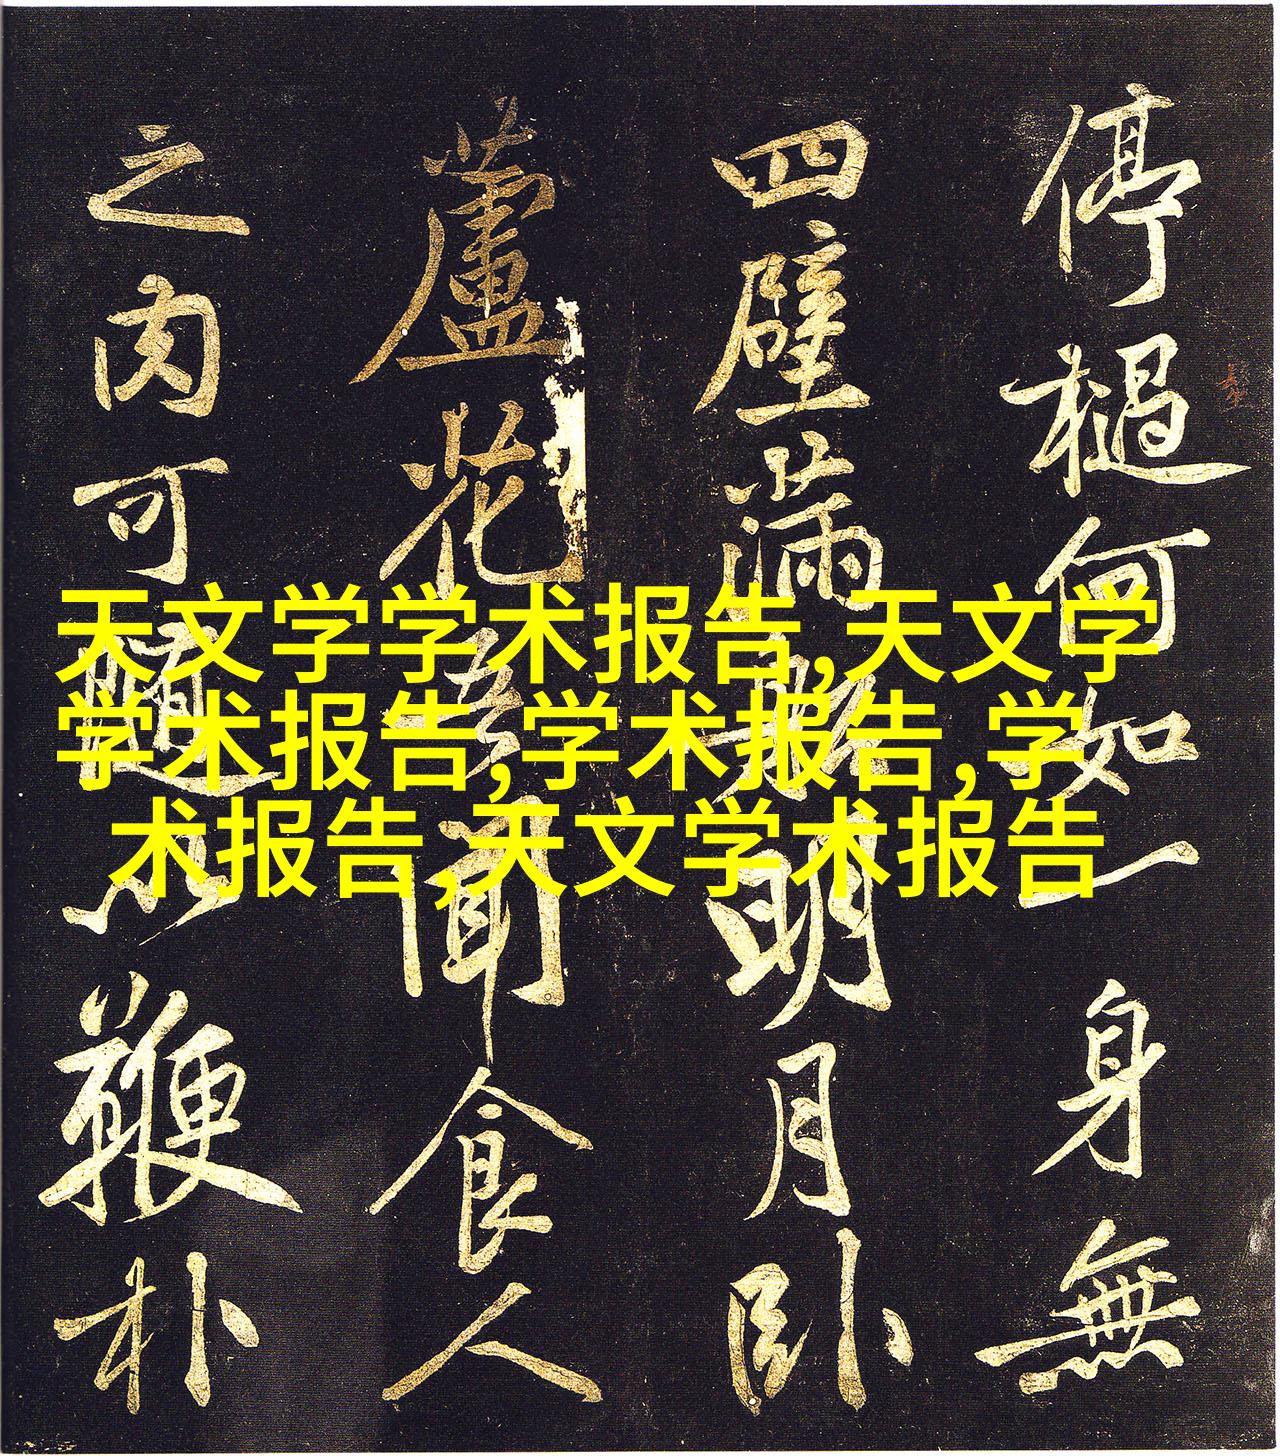 停檛何如一身無
四壁滿明月卧
蘆花吾聞食人
之肉可隨以鞭朴
天文学学术报告,天文学
学术报告,学术报告,学
术报告,天文学术报告